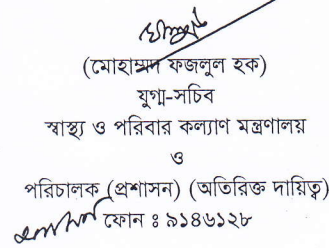 (মোহাম্মদ ফজলুল হক)
যুগ্ম-সচিব
স্বাস্থ্য ও পরিবার কল্যাণ মন্ত্রণালয়
ও
পরিচালক (প্রশাসন) (অতিরিক্ত দায়িত্ব)
ফোন ঃ ৯১৪৬১২৮